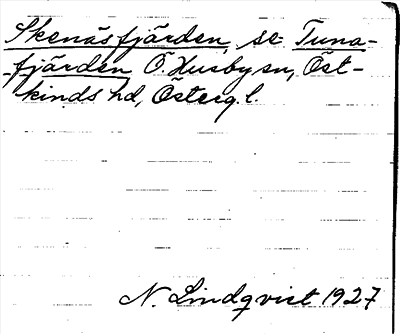 Skenäsfjärden, se Tuna-
fjärden Ö. Husby sn, Öst-
kinds hd, Österg. l.
N. Lindqvist 1927